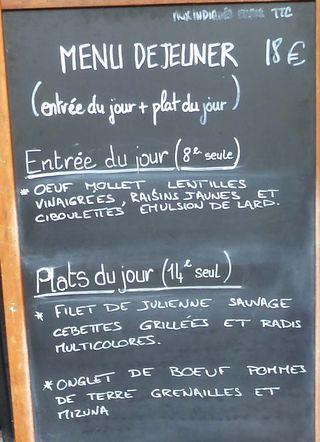 PRIX INDIQUÉS TTC
MENU DEJEUNER 18€
(entrée du jour + plat du jour)
Entrée du jour (8€ seule)
* OEUF MOLLET LENTILLES
VINAIGREES, RAISINS JAUNES ET
CIBOULETTES EMULSION DE LARD.
Plats du jour (14€ seul)
* FILET DE JULIENNE SAUVAGE
CEBETTES GRILLÉES ET RADIS
MULTICOLORES.
* ONGLET DE BOEUF POMMES
DE TERRE GRENAILLES ET
MIZUNA